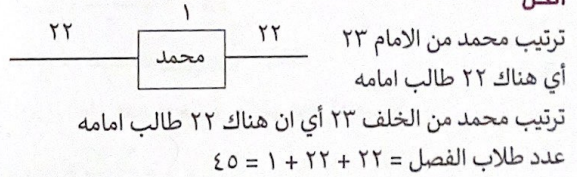 ١
٢٢
٢٢
محمد
ترتيب محمد من الامام ٢٣
أي هناك ٢٢ طالب امامه
ترتيب محمد من الخلف ٢٣ أي ان هناك ٢٢ طالب امامه
عدد طلاب الفصل = ٢٢ + ٢٢ + ١ = ٤٥